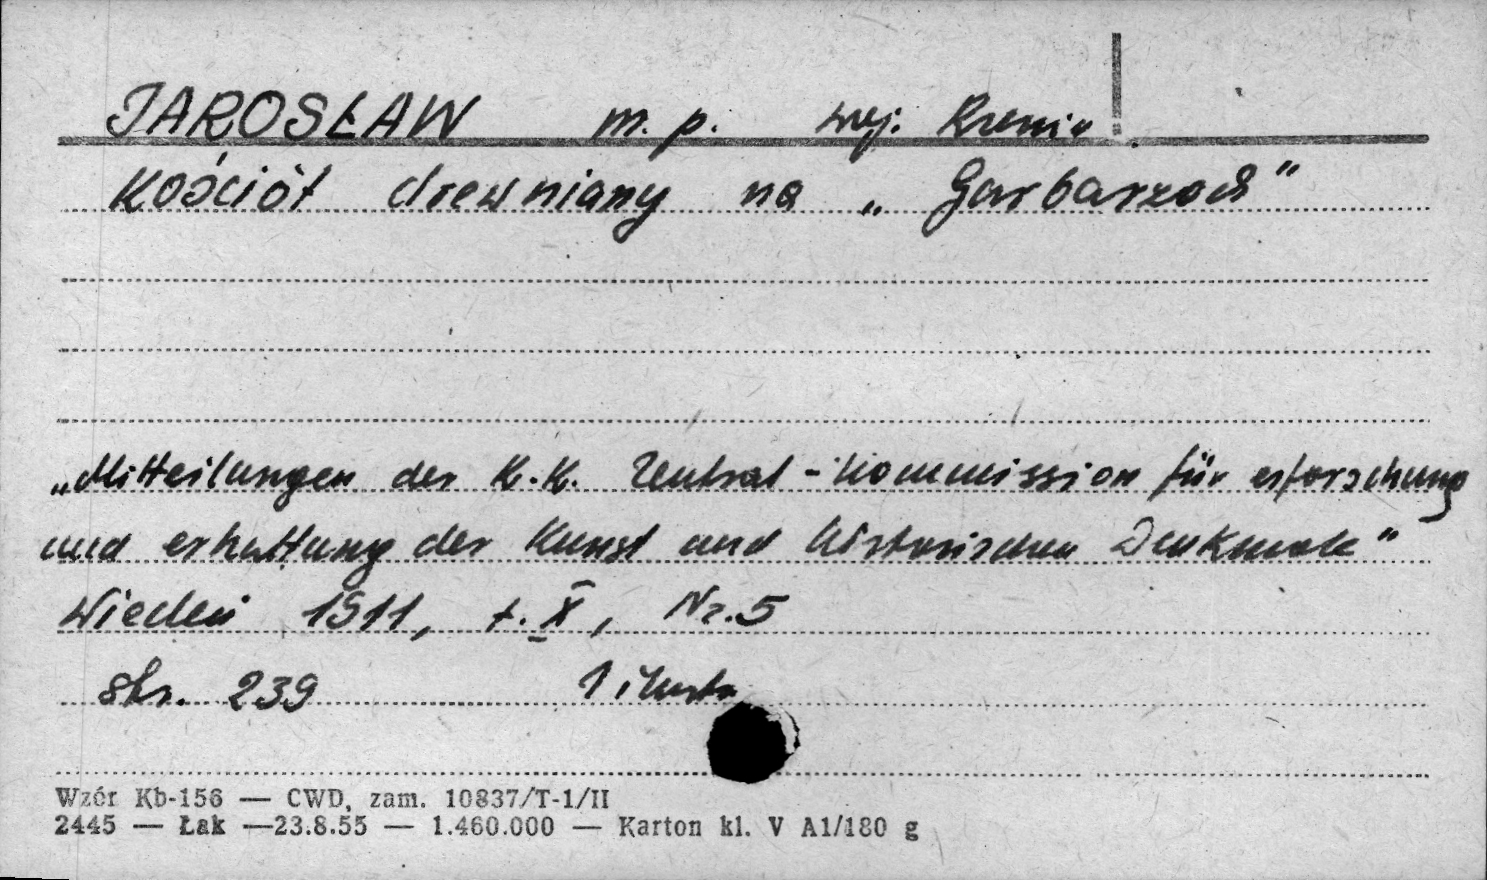 JAROSŁAW m. p. woj. Rzeszów
Kościół drewniany na „Garbarzach"
„Mitteilungen der K.K. Zentral-Kommission für erforschung
und erhaltung der Kunst und historischen Denkmale"
Wiedeń 1911, t. X, Nr. 5
str. 239 1 ilustr.
Wzór Kb-156 — CWD, zam. 10837/T-1/II
2445 — Łak —23.8.55 — 1.460.000 — Karton kl. V A1/180 g